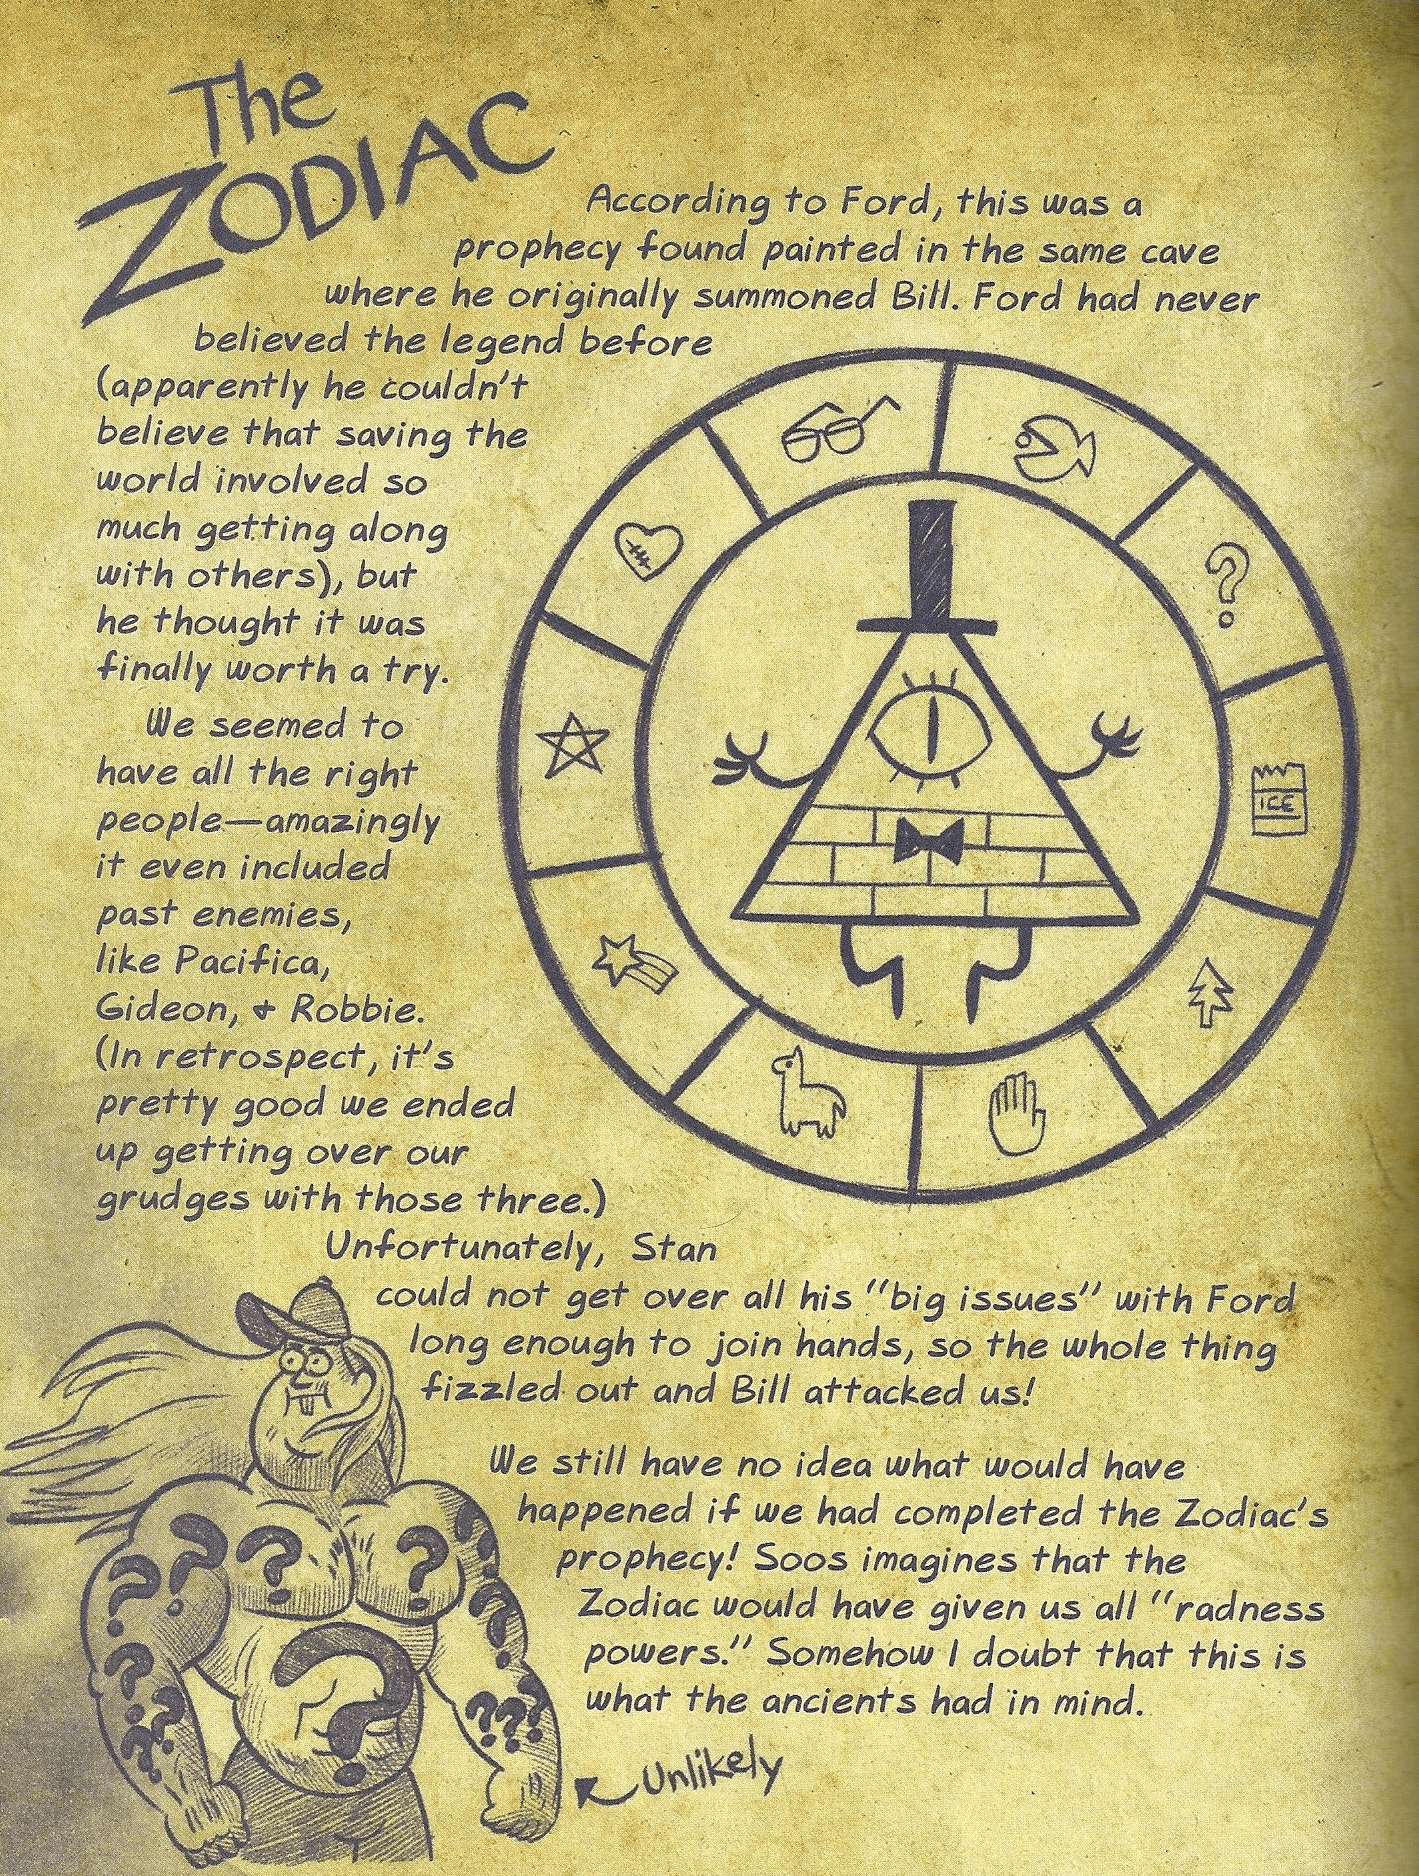 The
ZODIAC
According to Ford, this was a
prophecy found painted in the same cave
where he originally summoned Bill. Ford had never
believed the legend before
(apparently he couldn't
believe that saving the
world involved so
much getting along
with others), but
he thought it was
finally worth a try.
We seemed to
have all the right
people—amazingly
it even included
past enemies,
like Pacifica,
Gideon, & Robbie.
(In retrospect, it's
pretty good we ended
up getting over our
grudges with those three.)
?
ICE
Unfortunately, Stan
could not get over all his "big issues" with Ford
long enough to join hands, so the whole thing
fizzled out and Bill attacked us!
We still have no idea what would have
happened if we had completed the Zodiac's
prophecy! Soos imagines that the
Zodiac would have given us all "radness
powers." Somehow I doubt that this is
what the ancients had in mind.
Unlikely